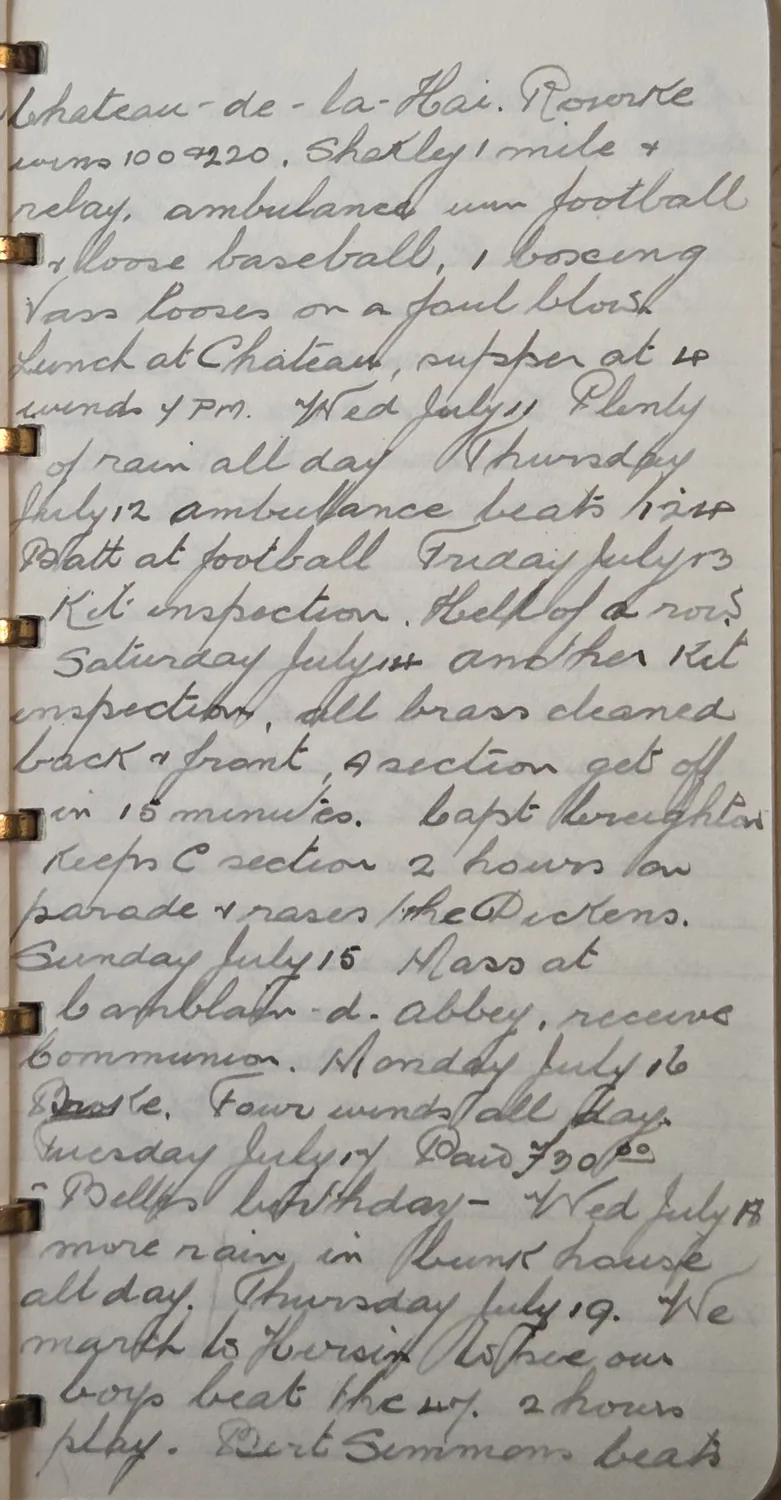 Chateau-de-la-Hai. Rourke
wins 100 & 220. Shakly 1 mile &
relay. ambulance win football
& loose baseball, 1 boxeing
Vass looses on a foul blow.
Lunch at Chateau, supper at 4
winds 7 PM. Wed July 11 Plenty
of rain all day Thursday
July 12 ambulance beats 124
Batt at football Friday July 13
Kit inspection. Hell of a row.
Saturday July 14 another Kit
inspection, all brass cleaned
back & front, A section get off
in 15 minutes. Capt Creighton
Keeps C section 2 hours on
parade & rases the Dickens.
Sunday July 15 Mass at
Camblain-d. abbey, receive
Communion. Monday July 16
Broke. Four winds all day.
Tuesday July 17 Paid 30⁰⁰
- Bellas birthday - Wed July 18
more rain in bunk house
all day. Thursday July 19. We
march to Hersin to see our
boys beat the 47. 2 hours
play. Bert Simmons beats